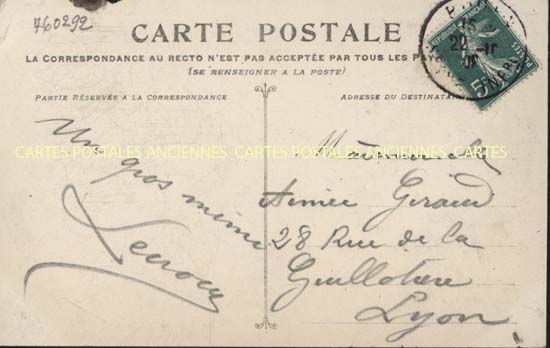 760292
CARTE POSTALE
LA CORRESPONDANCE AU RECTO N'EST PAS ACCEPTÉE PAR TOUS LES PAYS
(SE RENSEIGNER A LA POSTE)
PARTIE RÉSERVÉE A LA CORRESPONDANCE
ADRESSE DU DESTINATAIRE
CARTES POSTALES ANCIENNES CARTES POSTALES ANCIENNES
Un gros
Mademoiselle
Aimée Giraud
28 Rue de la
Guillotière
Lyon
22
5